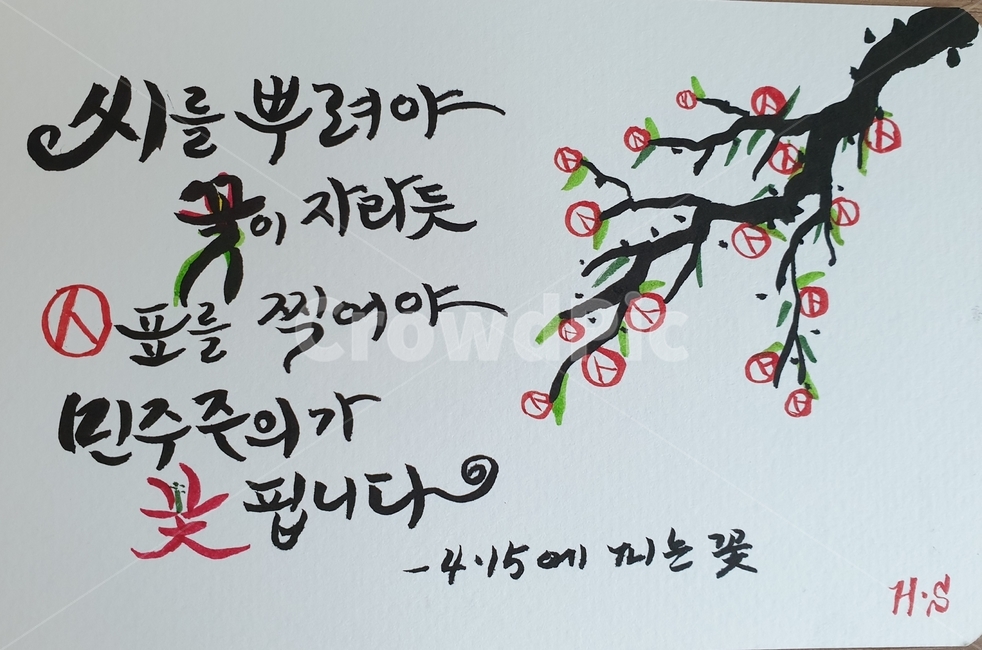 씨를 뿌려야
꽃이 자라듯
표를 찍어야
민주주의가
꽃 핍니다
-4.15에 피는 꽃
H.S
CrowdPic